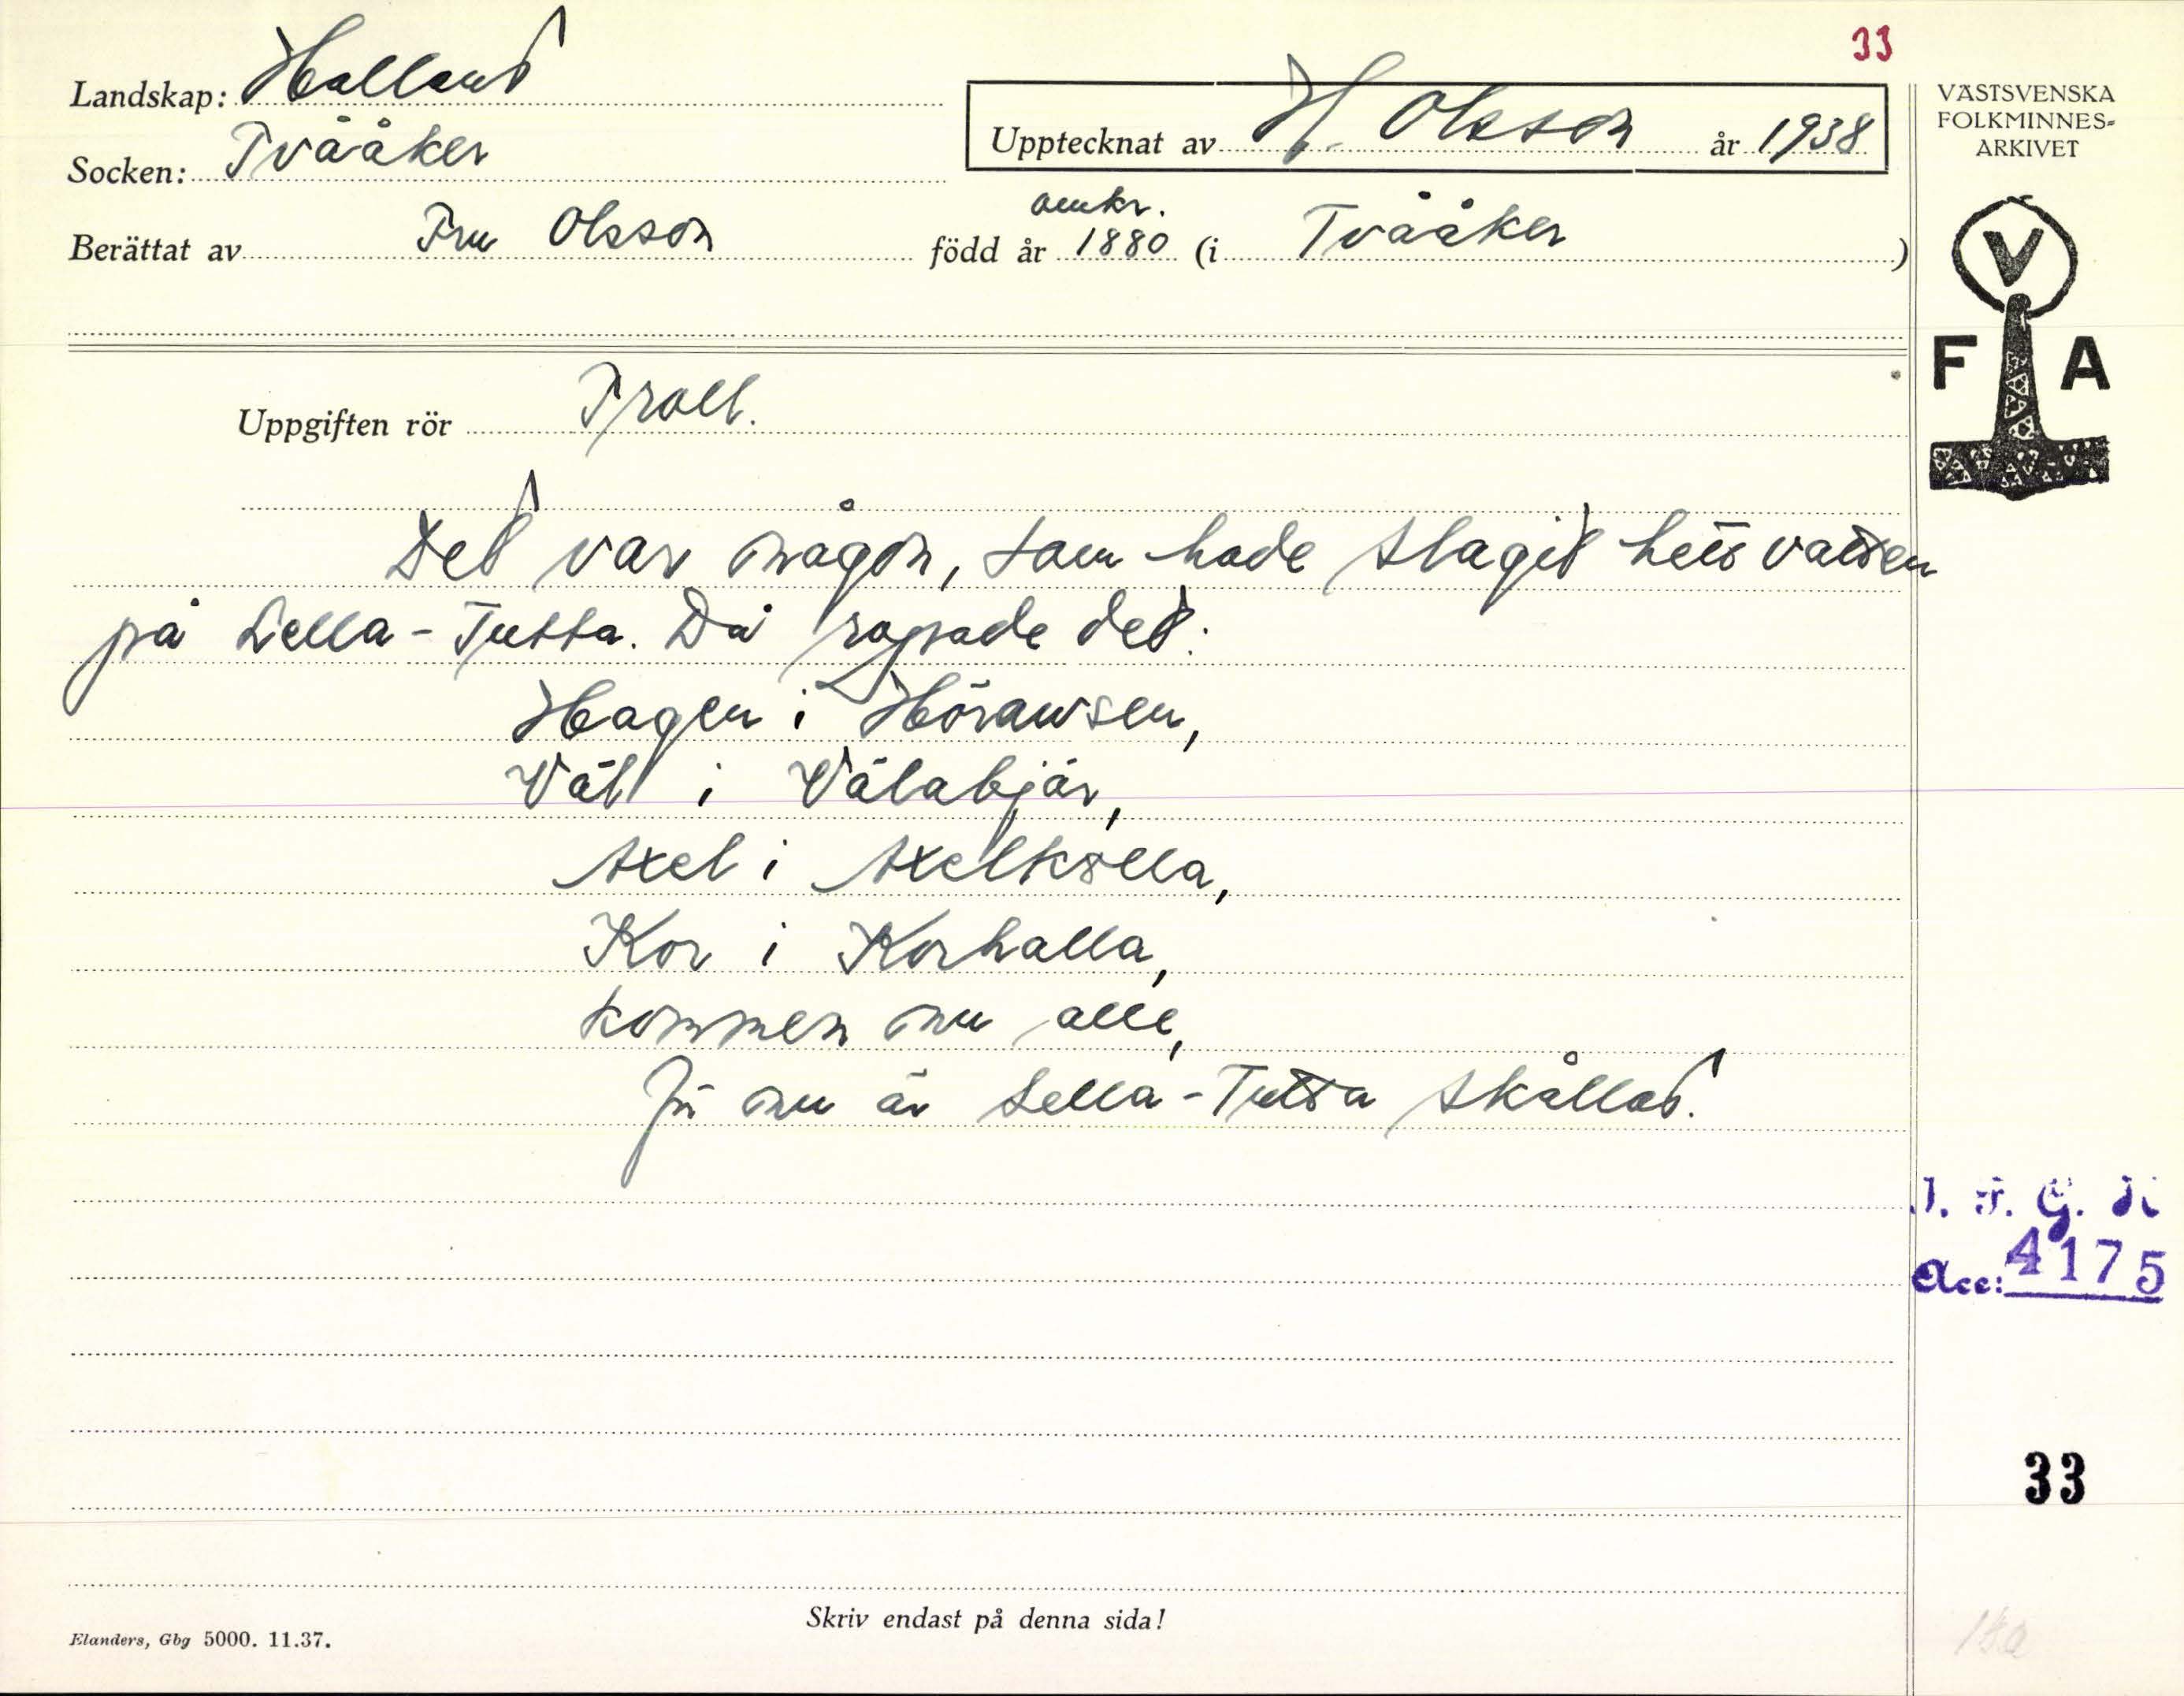 33
Landskap: Halland
Socken: Tvååker
Upptecknat av H. Olsson år 1938
VÄSTSVENSKA
FOLKMINNES-
ARKIVET
Berättat av Fru Olsson född år omkr. 1880 (i Tvååker)
V
F A
Uppgiften rör Troll.
Det var någon, som hade slagit hett vatten
på Lella-Tutta. Då ropade det:
Hagen i Höransen,
Väl i Välabjär,
Axel i Axelkälla,
Kor i Korhalla,
kommen nu alle,
Ju nu är Lella-Tutta skållad.
Acc: 4175
33
Skriv endast på denna sida!
Elanders, Gbg 5000. 11.37.